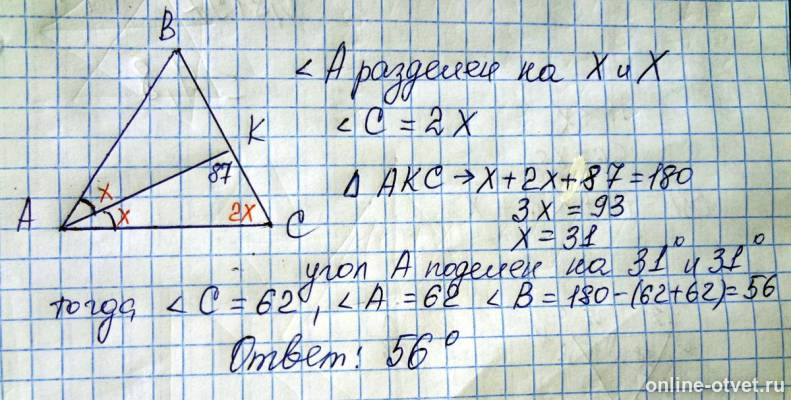 B
K
87
A
x
x
2x
C
< A разделен на X и X
< C = 2X
Δ AKC → X + 2X + 87 = 180
3X = 93
X = 31
угол А поделен на 31° и 31°
тогда < C = 62, < A = 62 < B = 180 - (62+62) = 56
Ответ: 56°
online-otvet.ru